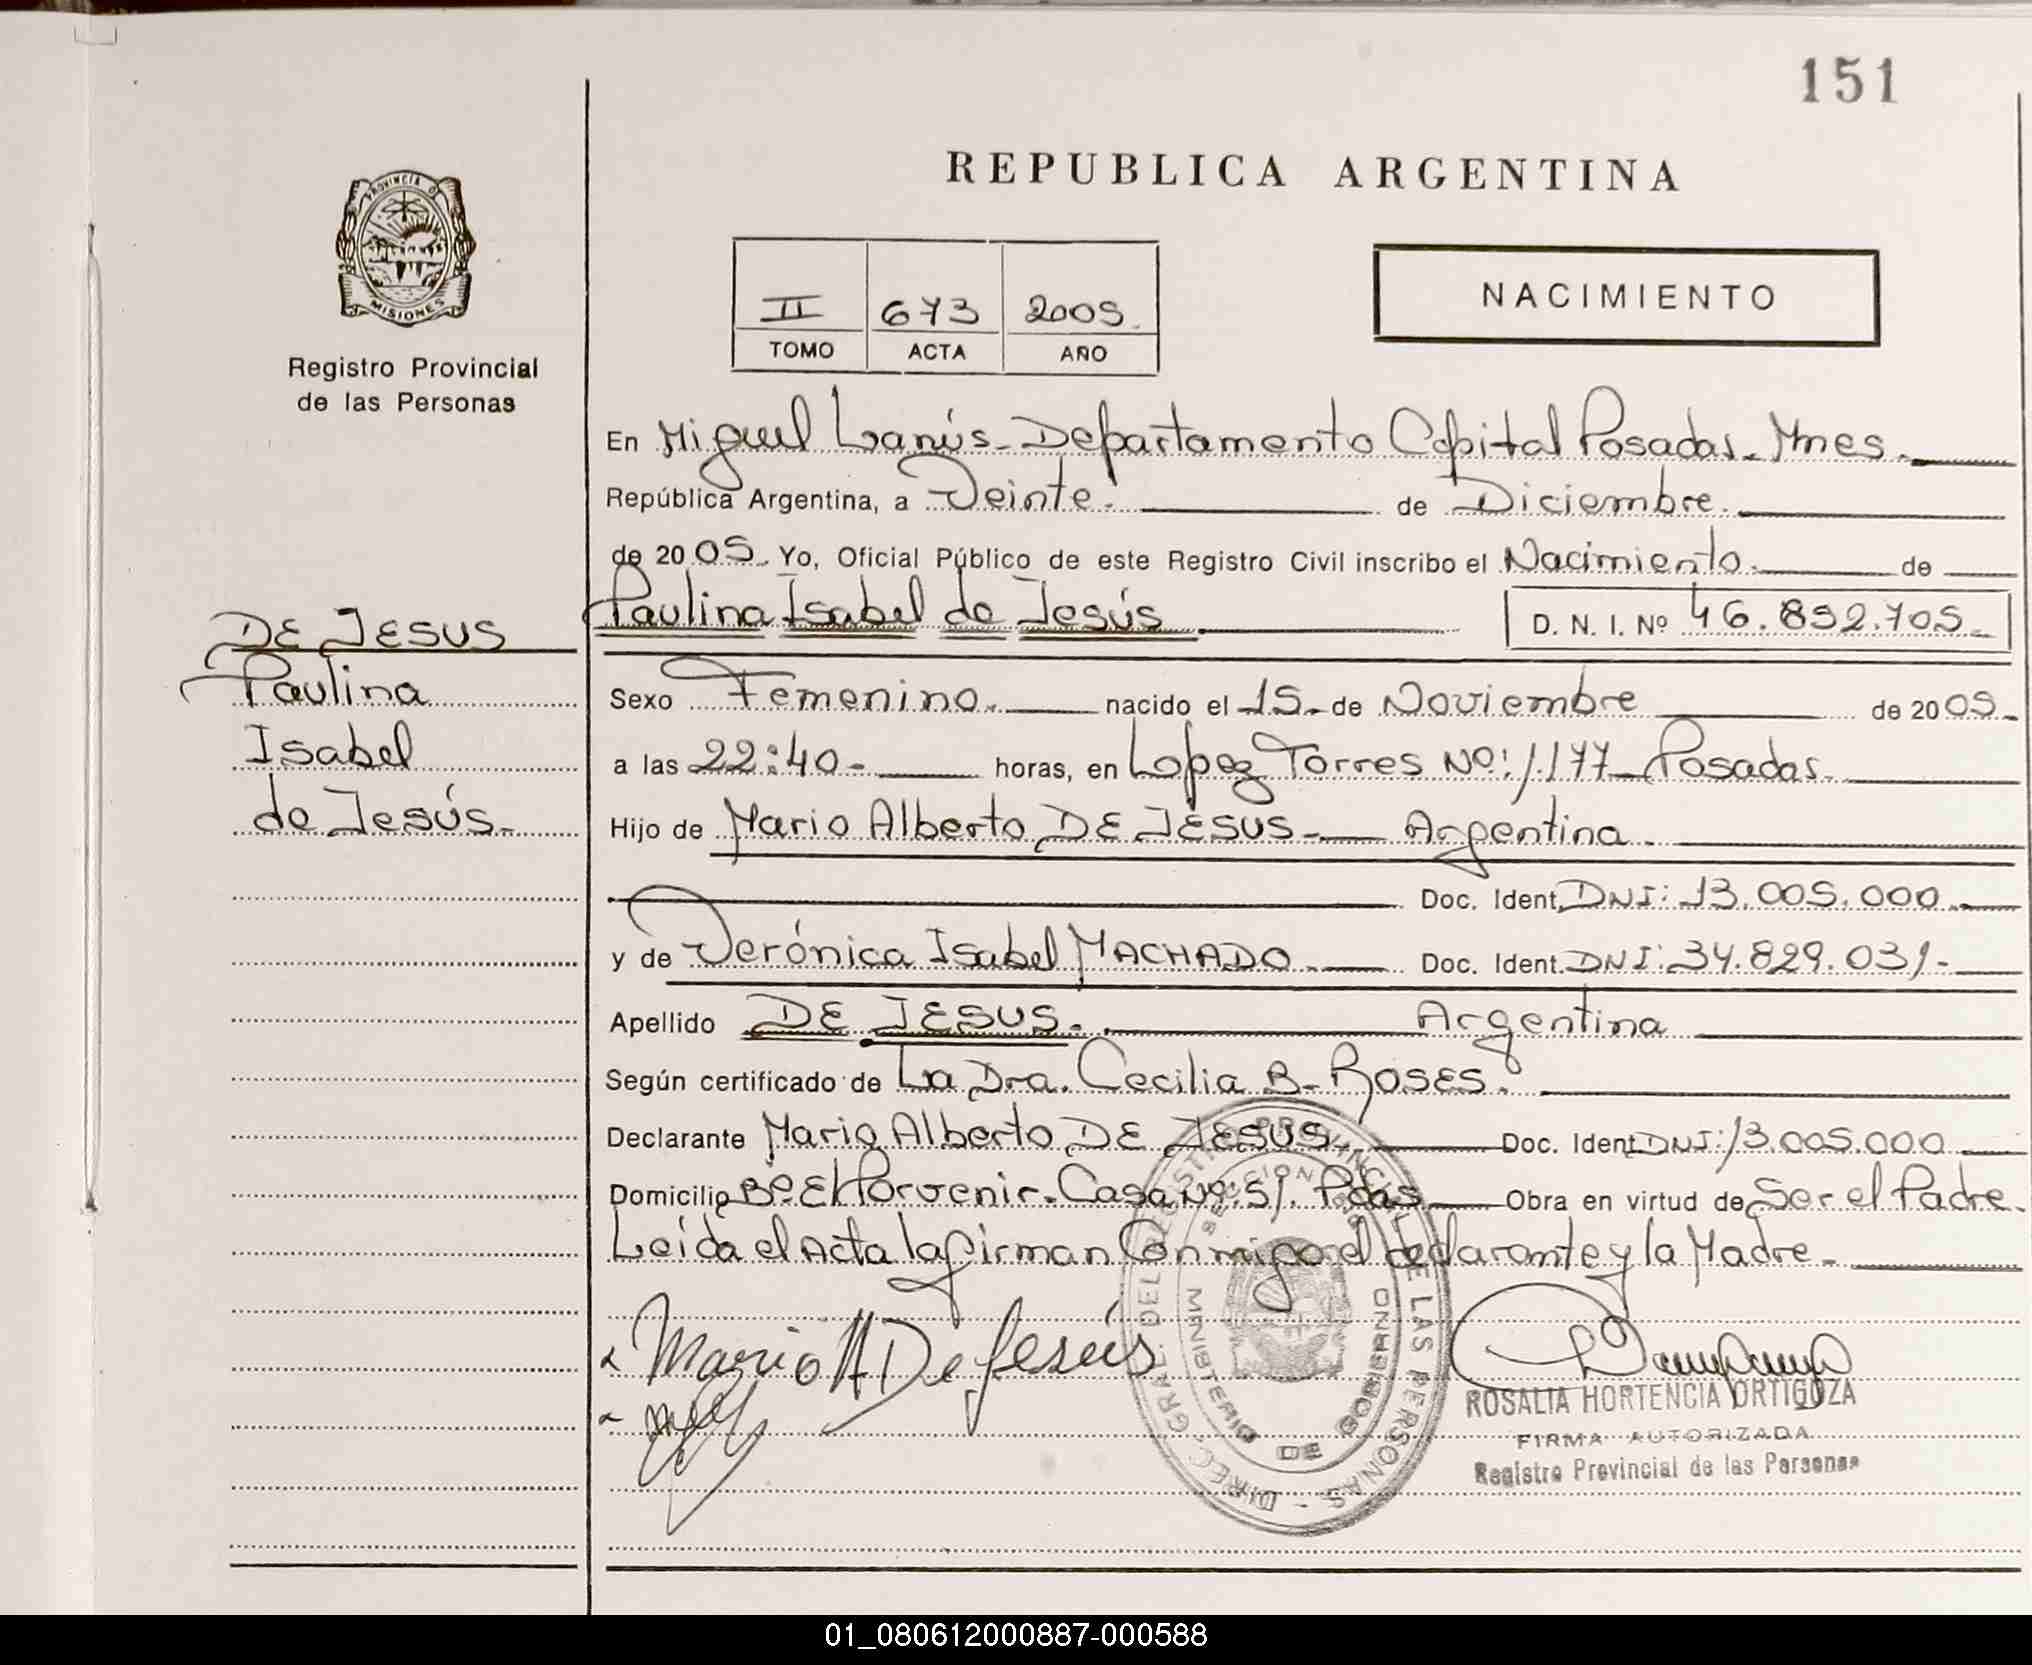 151
REPUBLICA ARGENTINA
PROVINCIA D
MISIONES
Registro Provincial
de las Personas
II 673 2005
TOMO ACTA AÑO
NACIMIENTO
En Miguel Lanús - Departamento Capital Posadas - Mnes.
República Argentina, a Veinte. de Diciembre.
de 2005. Yo, Oficial Público de este Registro Civil inscribo el Nacimiento. de
Paulina Isabel de Jesús
D. N. I. Nº 46.892.705
DE JESUS
Paulina
Isabel
de Jesús.
Sexo Femenino. nacido el 15 de Noviembre de 2005
a las 22:40 horas, en Lopez Torres Nº: 1.177 Posadas
Hijo de Mario Alberto DE JESUS Argentina
Doc. Ident. DNI: 13.005.000
y de Verónica Isabel MACHADO Doc. Ident. DNI: 34.829.031
Apellido DE JESUS. Argentina
Según certificado de La Dra. Cecilia B. ROSES.
Declarante Mario Alberto DE JESUS Doc. Ident DNI: 13.005.000
Domicilio Bº El Porvenir. Casa Nº: 51. Pdas Obra en virtud de Ser el Padre.
Leida el Acta la firman Conmigo el declarante y la Madre
Mario A De Jesús
DIREC. GRAL. DEL REGISTRO PROVINCIAL DE LAS PERSONAS
MINISTERIO DE GOBIERNO
ROSALIA HORTENCIA ORTIGOZA
FIRMA AUTORIZADA
Registro Provincial de las Personas
01_080612000887-000588